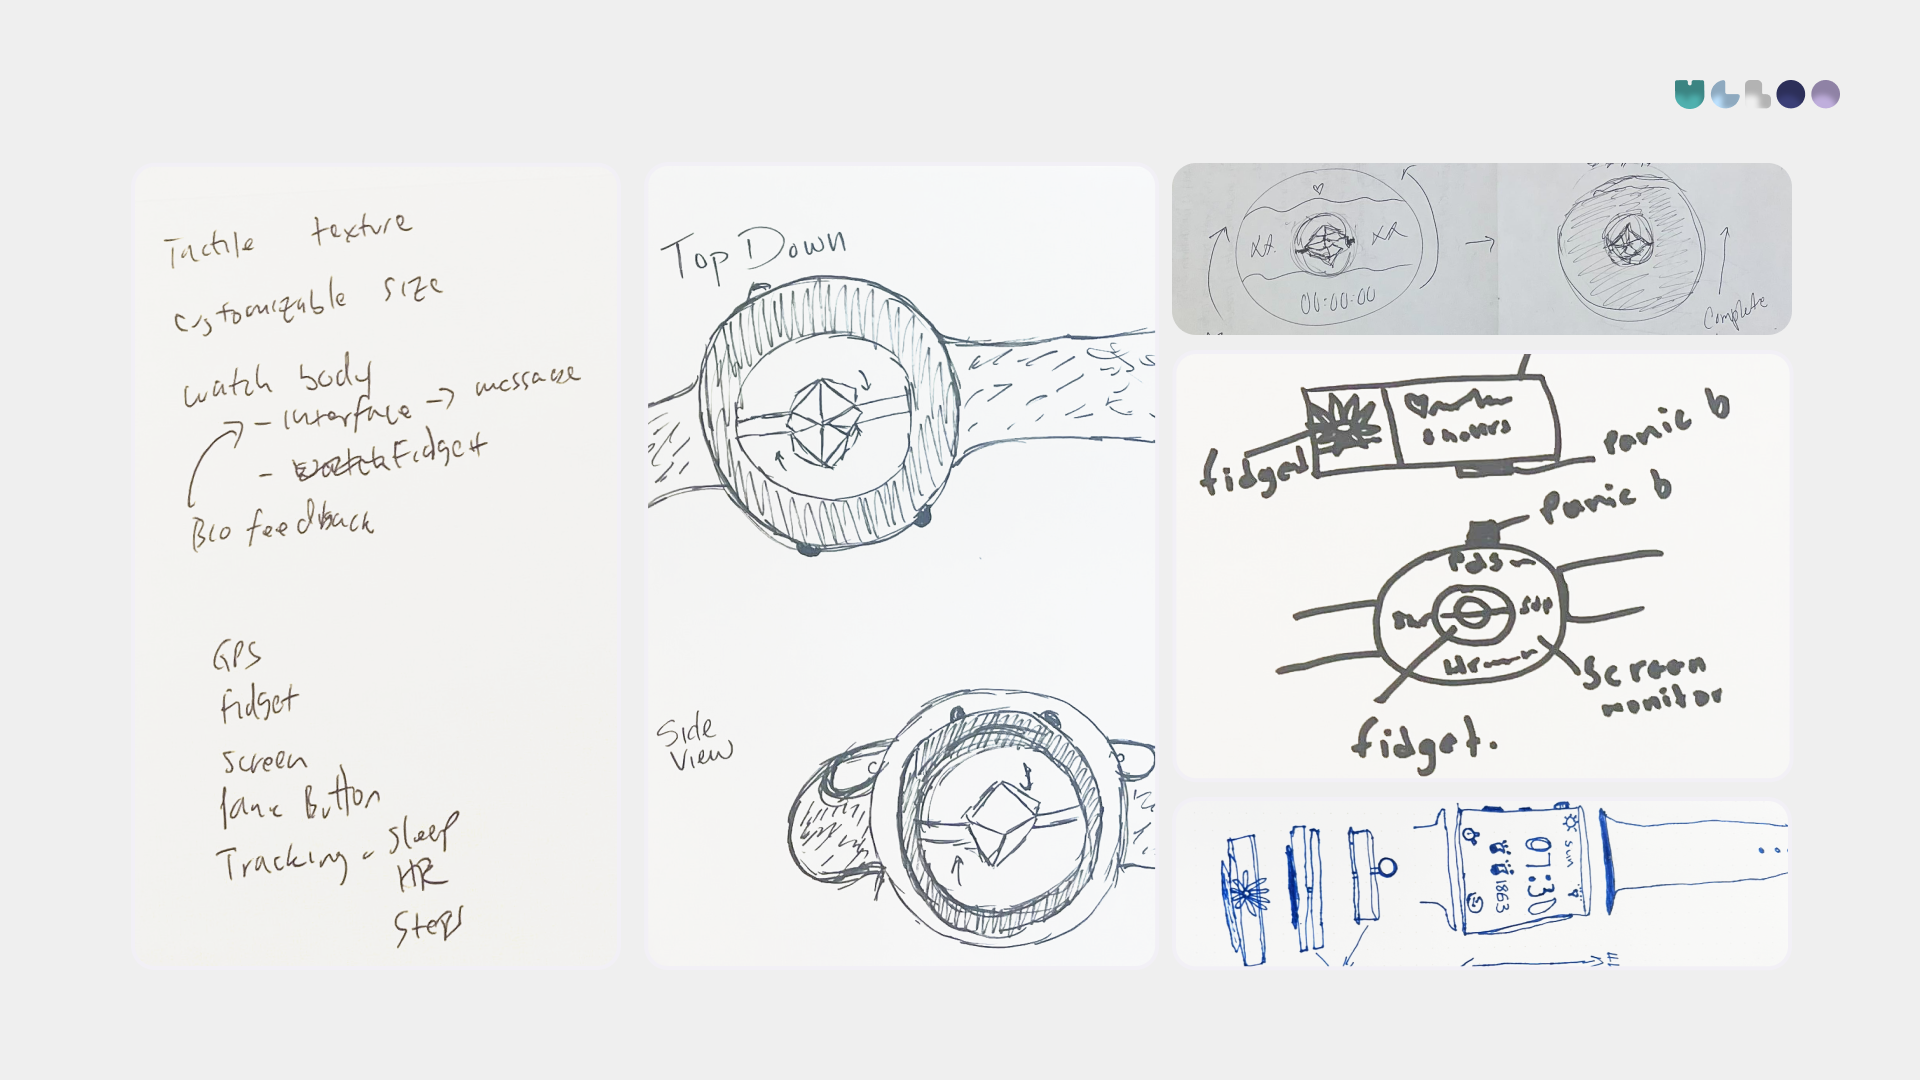 Tactile texture
Customizable size
watch body
- interface → message
- Fidget
Bio feedback
GPS
fidget
screen
Panic Button
Tracking - sleep
HR
Steps
Top Down
Side
View
00:00:00
Complete
fidget
8 hours
Panic b
Panic b
Hr
Screen
monitor
fidget.
sun
07:30
1863